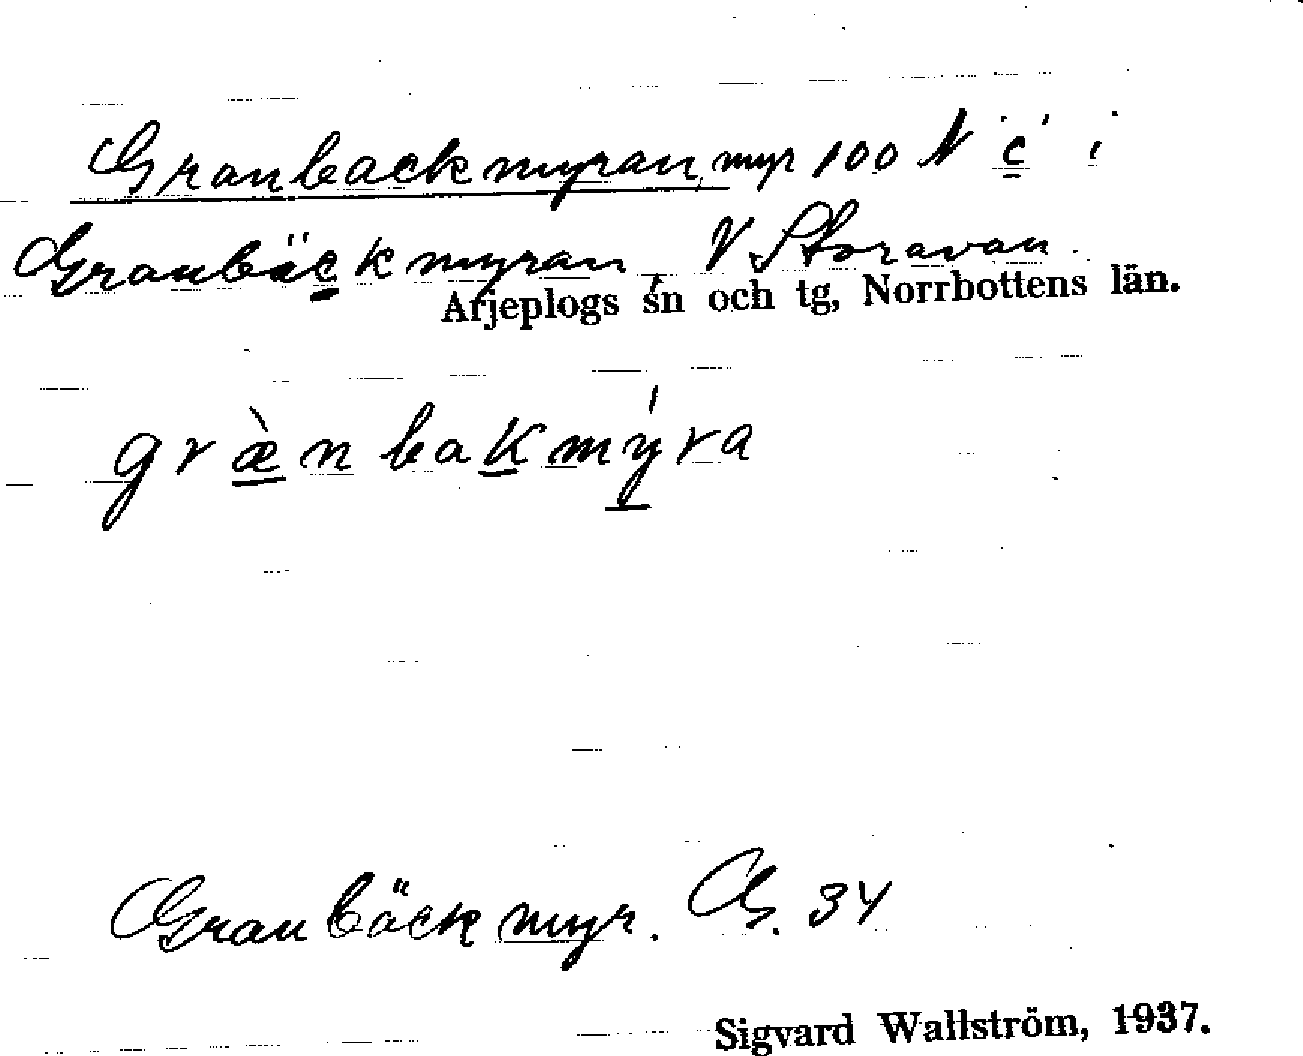 Granbackmyran, myr 100 N c i
Granbäckmyran, V Storavan.
Arjeplogs sn och tg, Norrbottens län.
græ̀nbakmýra
Granbäckmyr. 34
Sigvard Wallström, 1937.